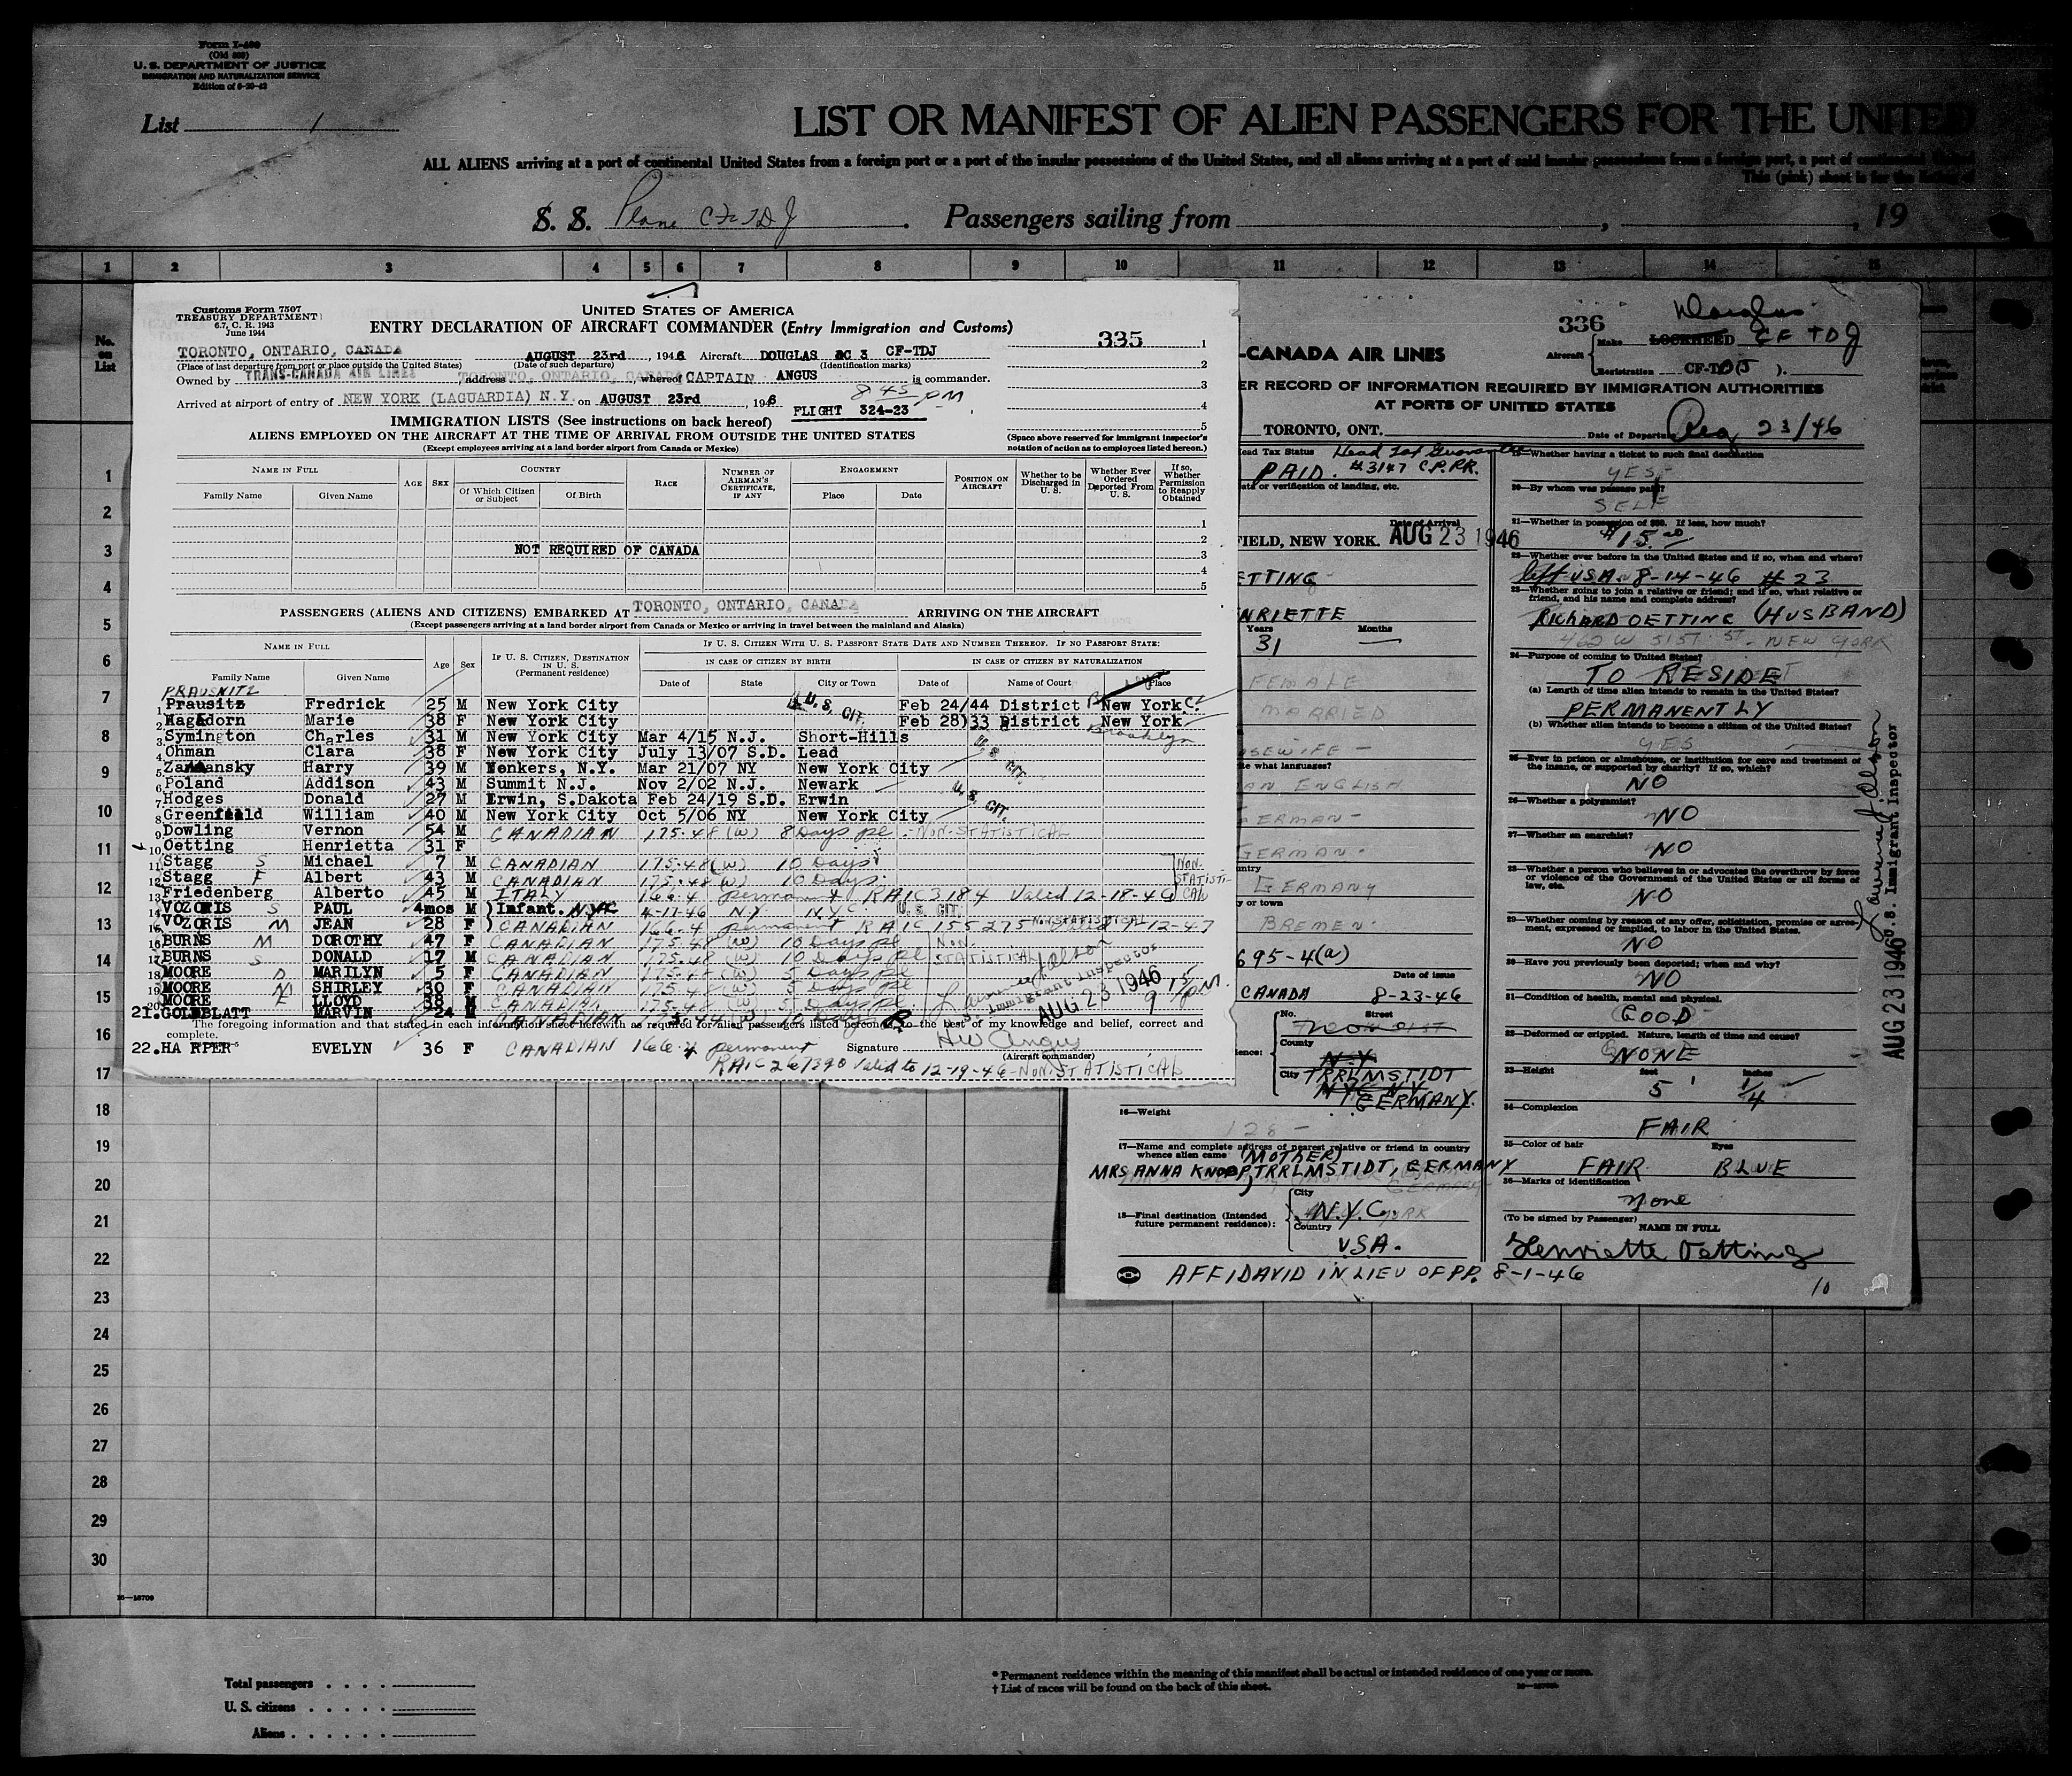 Form I-400
(Old 500)
U. S. DEPARTMENT OF JUSTICE
IMMIGRATION AND NATURALIZATION SERVICE
List 1
LIST OR MANIFEST OF ALIEN PASSENGERS FOR THE UNITED
ALL ALIENS arriving at a port of continental United States from a foreign port or a port of the insular possessions of the United States, and all aliens arriving at a port of said insular possessions from a foreign port, a part of continental United
This (pink) sheet is for the listing of
S. S. Plane CF-TDJ . Passengers sailing from , , 19
1 2 3 4 5 6 7 8 9 10 11 12 13 14 15
No. on List
Customs Form 7507
TREASURY DEPARTMENT
6.7, C. R. 1943
June 1944
UNITED STATES OF AMERICA
ENTRY DECLARATION OF AIRCRAFT COMMANDER (Entry Immigration and Customs)
335
TORONTO, ONTARIO, CANADA AUGUST 23rd , 1946 Aircraft DOUGLAS DC 3 CF-TDJ
(Place of last departure from port or place outside the United States) (Date of such departure) (Identification marks)
Owned by TRANS-CANADA AIR LINES address TORONTO, ONTARIO, CANADA whereof CAPTAIN ANGUS is commander.
8 45 PM
Arrived at airport of entry of NEW YORK (LAGUARDIA) N.Y. on AUGUST 23rd , 1946
FLIGHT 324-23
IMMIGRATION LISTS (See instructions on back hereof)
ALIENS EMPLOYED ON THE AIRCRAFT AT THE TIME OF ARRIVAL FROM OUTSIDE THE UNITED STATES
(Except employees arriving at a land border airport from Canada or Mexico)
(Space above reserved for immigrant inspector's notation of action as to employees listed hereon.)
NAME IN FULL AGE SEX COUNTRY RACE NUMBER OF AIRMAN'S CERTIFICATE, IF ANY ENGAGEMENT POSITION ON AIRCRAFT Whether to be Discharged in U. S. Whether Ever Ordered Deported From U. S. If so, Whether Permission to Reapply Obtained
Family Name Given Name Of Which Citizen or Subject Of Birth Place Date
NOT REQUIRED OF CANADA
PASSENGERS (ALIENS AND CITIZENS) EMBARKED AT TORONTO, ONTARIO, CANADA ARRIVING ON THE AIRCRAFT
(Except passengers arriving at a land border airport from Canada or Mexico or arriving in travel between the mainland and Alaska)
NAME IN FULL Age Sex IF U. S. CITIZEN, DESTINATION IN U. S. (Permanent residence) IF U. S. CITIZEN WITH U. S. PASSPORT STATE DATE AND NUMBER THEREOF. IF NO PASSPORT STATE:
IN CASE OF CITIZEN BY BIRTH IN CASE OF CITIZEN BY NATURALIZATION
Family Name Given Name Date of State City or Town Date of Name of Court Place
PRAUSNITZ
1. Prausitz Fredrick 25 M New York City U.S. CIT. Feb 24/44 District New York
2. Hagedorn Marie 38 F New York City Feb 28/33 District New York
Brooklyn
3. Symington Charles 31 M New York City Mar 4/15 N.J. Short-Hills
4. Ohman Clara 38 F New York City July 13/07 S.D. Lead U.S. CIT.
5. Harry 39 M Yonkers, N.Y. Mar 21/07 NY New York City
6. Poland Addison 43 M Summit N.J. Nov 2/02 N.J. Newark
7. Hodges Donald 27 M Erwin, S.Dakota Feb 24/19 S.D. Erwin U.S. CIT.
8. Greenfield William 40 M New York City Oct 5/06 NY New York City
9. Dowling Vernon 54 M CANADIAN 175.48 (W) 8 Days pl - NON-STATISTICAL
10. Oetting Henrietta 31 F
11. Stagg S Michael 7 M CANADIAN 175.48 (W) 10 Days
12. Stagg F Albert 43 M CANADIAN 175.48 (W) 10 Days
NON-STATISTICAL
13. Friedenberg Alberto 45 M ITALY 166.4 permanent RAIC3184 Valid 12-18-46
14. VOZORIS S PAUL 4mos M Infant. NYC 4-17-46 NY N.Y.C. U.S. CIT.
15. VOZORIS M JEAN 28 F CANADIAN 166.4 permanent RAIC 155275 Valid 9-12-47
NON STATISTICAL
16. BURNS M DOROTHY 47 F CANADIAN 175.48 (W) 10 Days pl
17. BURNS S DONALD 17 M CANADIAN 175.48 (W) 10 Days pl
NON STATISTICAL
18. MOORE D MARILYN 5 F CANADIAN 175.48 (W) 5 Days pl
19. MOORE M SHIRLEY 30 F CANADIAN 175.48 (W) 5 Days pl
20. MOORE F LLOYD 38 M CANADIAN 175.48 (W) 5 Days pl
21. GOLDBLATT MARVIN 24 M CANADIAN 175.44 (W) 10 Days
Immigrant Inspector
AUG 23 1946 9 15 PM
The foregoing information and that stated in each information sheet herewith as required for alien passengers listed hereon is, to the best of my knowledge and belief, correct and complete.
Signature HW Angus
(Aircraft commander)
22. HARPER EVELYN 36 F CANADIAN 166.4 permanent
RAIC 267390 Valid to 12-19-46-NON STATISTICAL
336
Douglas
-CANADA AIR LINES
Aircraft Make LOCKHEED CF TDJ
Registration CF-TDJ ).
ER RECORD OF INFORMATION REQUIRED BY IMMIGRATION AUTHORITIES
AT PORTS OF UNITED STATES
TORONTO, ONT. Date of Departure Aug 23/46
Head Tax Status Head Tax Guarantee
PAID #3147 C.P.R.
date or verification of landing, etc.
Date of Arrival
FIELD, NEW YORK. AUG 23 1946
ETTING
NRIETTE
Years 31 Months —
FEMALE
MARRIED
SEWIFE -
te what languages?
AN ENGLISH
ERMAN -
GERMAN -
untry
GERMANY
y or town
BREMEN
695-4(a)
Date of issue
CANADA 8-23-46
No. Street
County
N.Y.
City TRRLMSTIDT
N.Y.C. N.Y.
GERMANY.
16—Weight 128 -
17—Name and complete address of nearest relative or friend in country whence alien came (MOTHER)
MRS ANNA KNOOP, TRRLMSTIDT, GERMANY
18—Final destination (Intended future permanent residence): City N.Y.C.
Country U.S.A.
AFFIDAVID IN LIEU OF PP. 8-1-46
19—Whether having a ticket to such final destination
YES
20—By whom was passage paid?
SELF
21—Whether in possession of $50. If less, how much?
$15.00
22—Whether ever before in the United States and if so, when and where?
left USA. 8-14-46 #23
23—Whether going to join a relative or friend; and if so, what relative or friend, and his name and complete address?
Richard OETTING (HUSBAND)
462 W 51ST ST - NEW YORK
24—Purpose of coming to United States?
TO RESIDE
(a) Length of time alien intends to remain in the United States?
PERMANENTLY
(b) Whether alien intends to become a citizen of the United States?
YES
25—Ever in prison or almshouse, or institution for care and treatment of the insane, or supported by charity? If so, which?
NO
26—Whether a polygamist?
NO
27—Whether an anarchist?
NO
28—Whether a person who believes in or advocates the overthrow by force or violence of the Government of the United States or all forms of law, etc.
NO
29—Whether coming by reason of any offer, solicitation, promise or agreement, expressed or implied, to labor in the United States?
NO
30—Have you previously been deported; when and why?
NO
31—Condition of health, mental and physical.
GOOD
32—Deformed or crippled. Nature, length of time and cause?
NONE
33—Height feet inches
5' 1/4
34—Complexion
FAIR
35—Color of hair Eyes
FAIR BLUE
36—Marks of identification
none
(To be signed by Passenger) NAME IN FULL
Henriette Oetting
10
U.S. Immigrant Inspector
AUG 23 1946
1
2
3
4
5
6
7
8
9
10
11
12
13
14
15
16
17
18
19
20
21
22
23
24
25
26
27
28
29
30
Total passengers
U. S. citizens
Aliens
* Permanent residence within the meaning of this manifest shall be actual or intended residence of one year or more.
† List of races will be found on the back of this sheet.